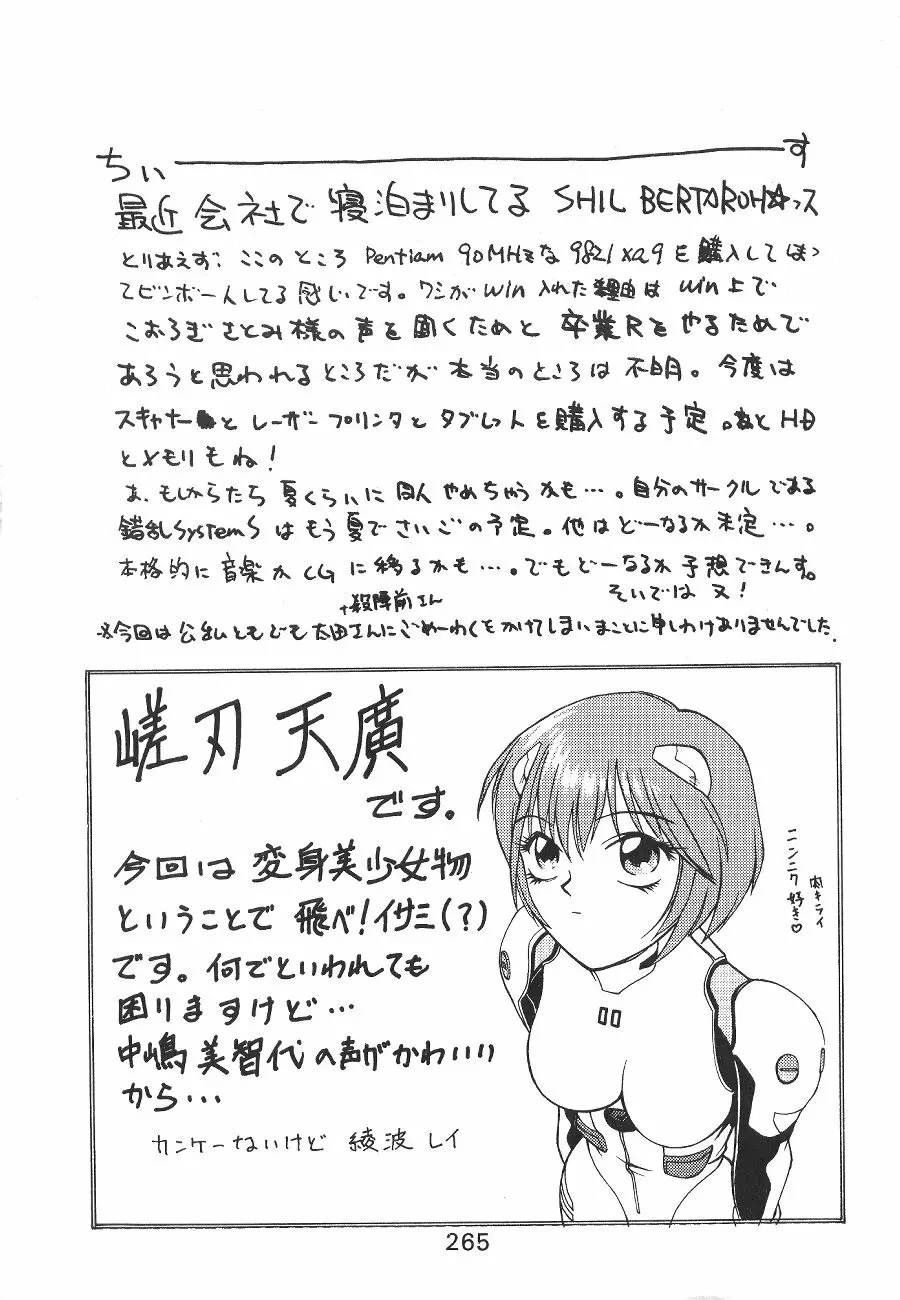 ちぃ――――――――す
最近 会社で 寝泊まりしてる SHIL BERTAROH☆っス
とりあえず、ここのところ Pentiam 90MHzな 9821Xa9を購入してほっ
てビンボー人してる感じです。ワシがwin入れた理由は win上で
こおろぎさとみ様の声を聞くためと 卒業Rをやるためで
あろうと思われるところだが 本当のところは不明。今度は
スキャナーとレーザープリンタとタブレットを購入する予定。あとHD
とメモリもね!
あ、もしかしたら 夏くらいに同人やめちゃうかも…。自分のサークルである
錯乱SystemSはもう夏でさいごの予定。他はどーなるか未定…。
本格的に音楽かCGに移るかも…。でもどーなるか予想できんす。
そいでは又!
↑殺陣前さん
※今回は公私ともども太田さんにごめーわくをかけてしまいまことに申しわけありませんでした.
嵯刃 天廣
です。
今回は変身美少女物
ということで 飛べ!イサミ(?)
です。何でといわれても
困りますけど…
中嶋美智代の声がかわいい
から…
カンケーないけど 綾波レイ
ニンニク好き♡
肉キライ
00
265